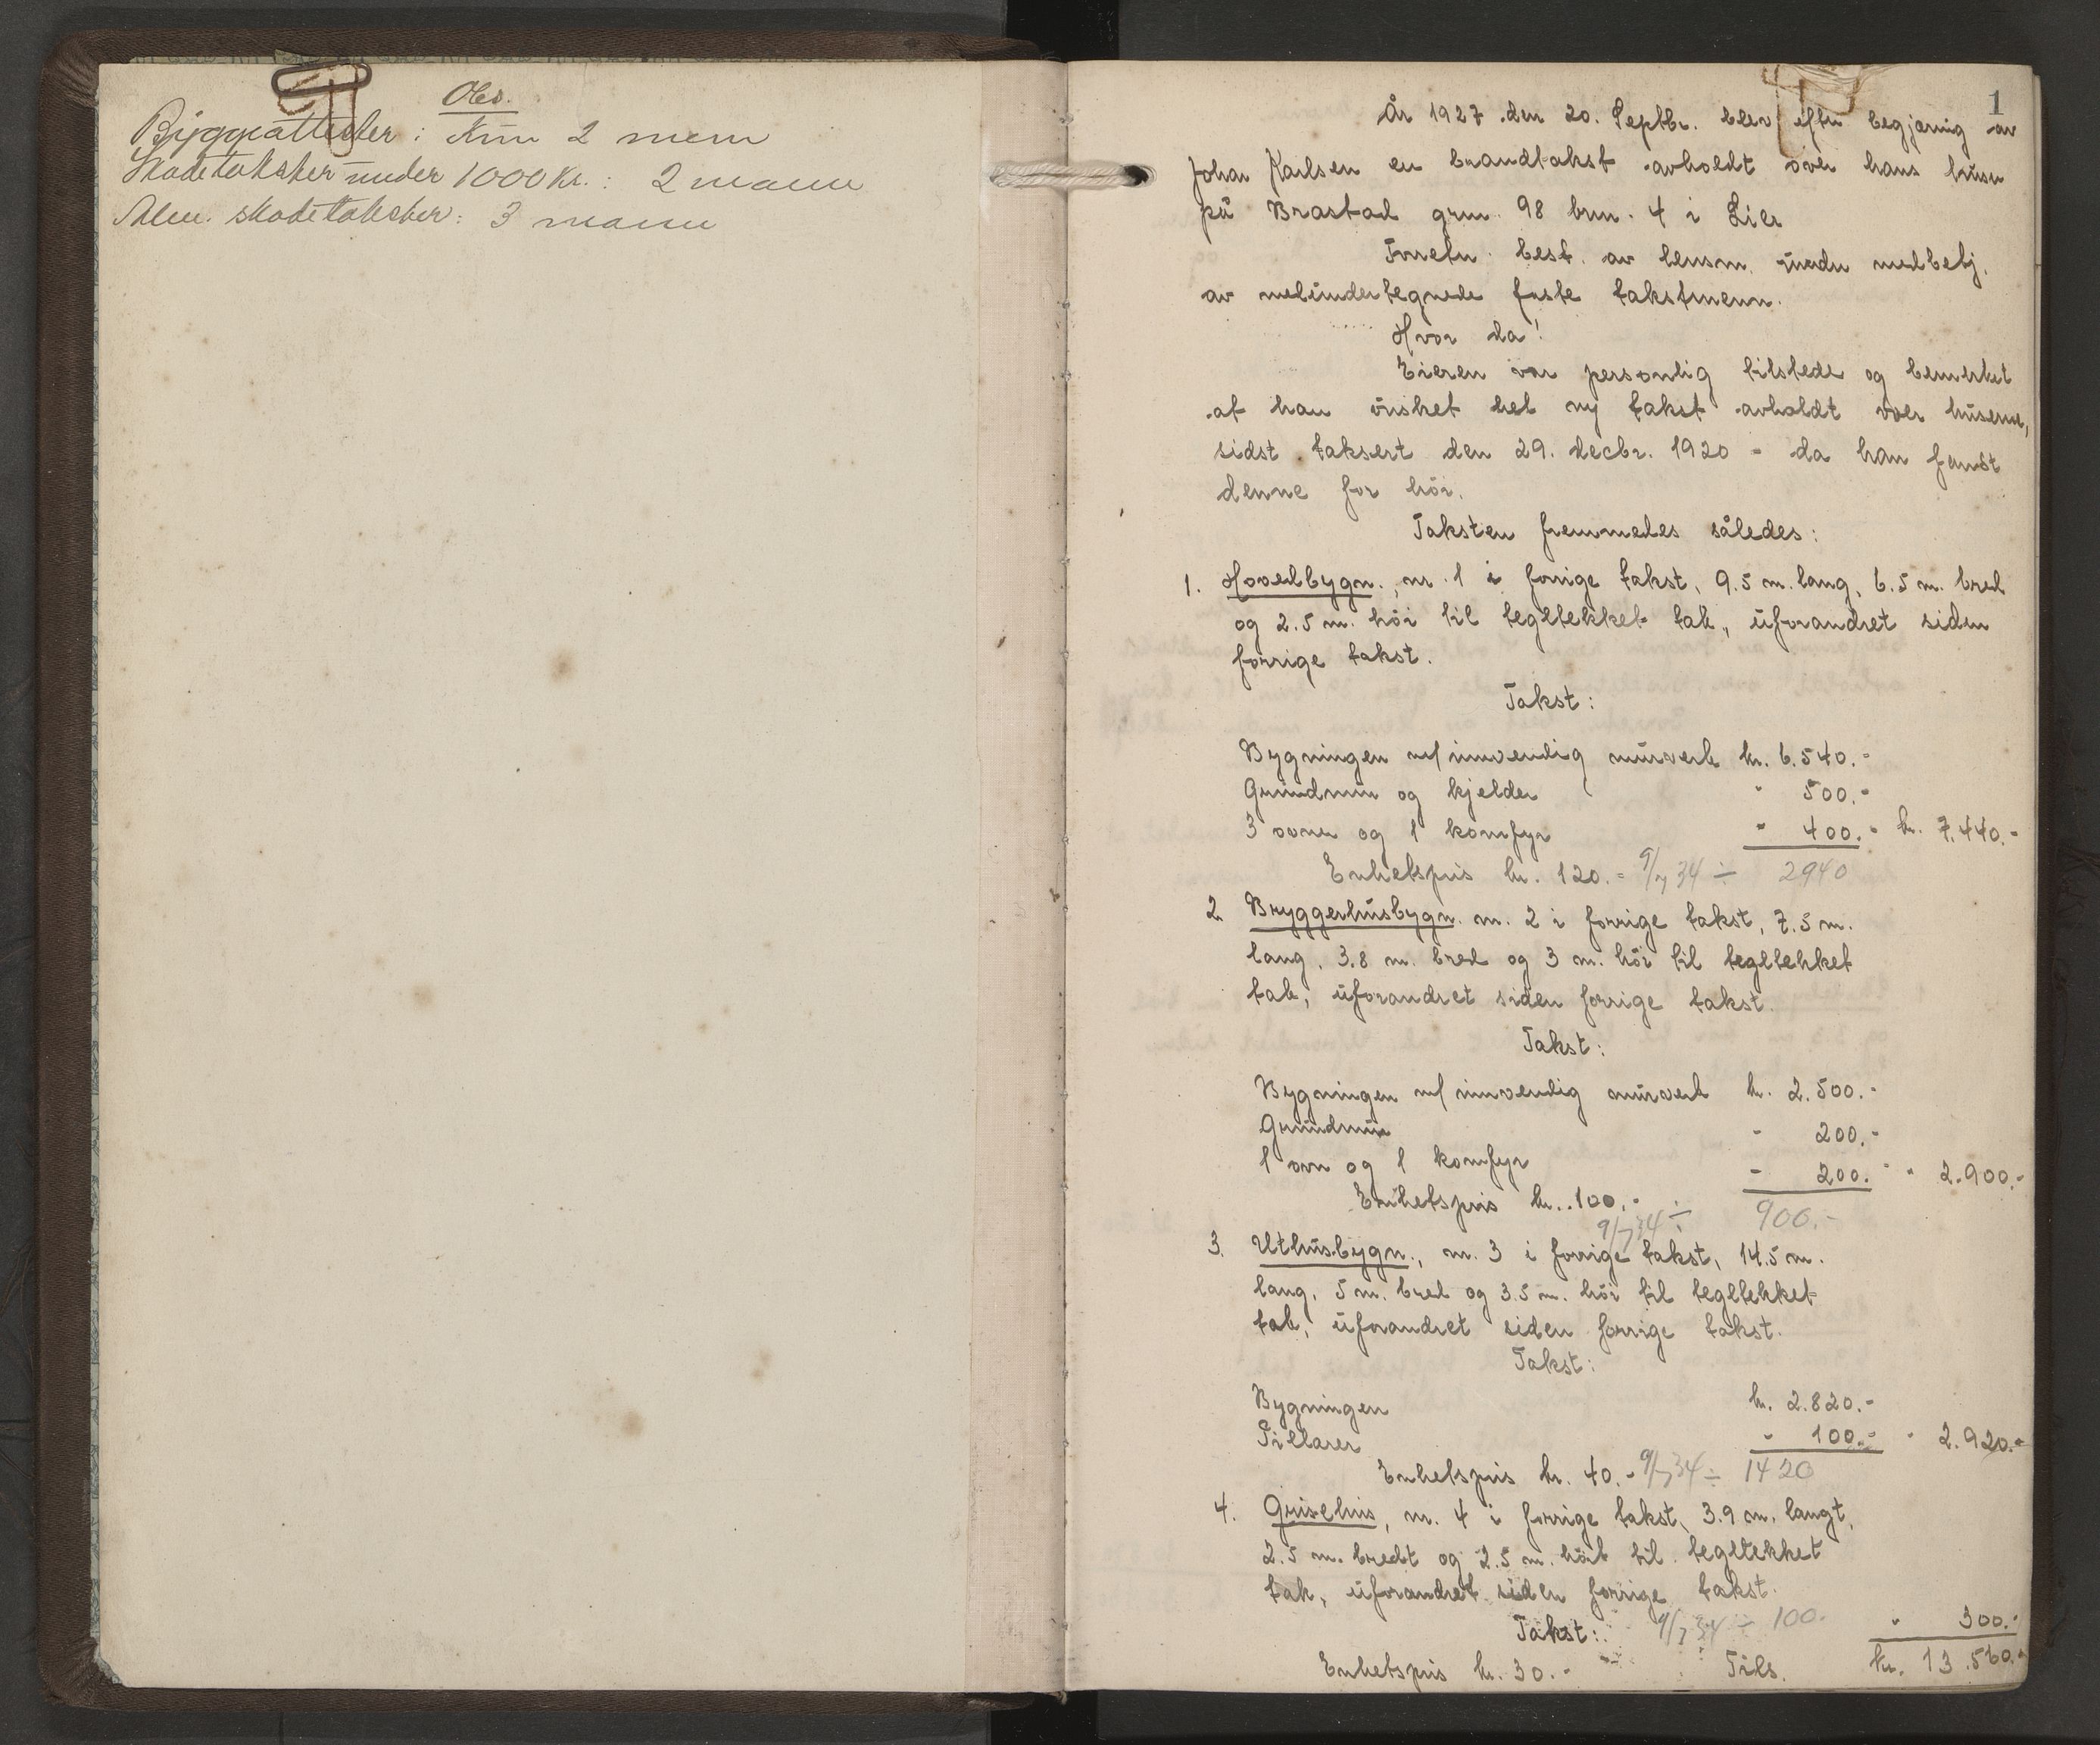 Obs.
Byggeattester: Kun 2 menn
Skadetakster under 1000 kr.: 2 mann
Alm. skadetakster: 3 mann
1
År 1927 den 20. Septbr. blev efter begjæring av
Johan Karlsen en brandtakst avholdt over hans huser
på Brastad grnr. 98 brnr. 4 i Lier
Forretn. best. av lensm. under medbetj.
av medundertegnede faste takstmenn.
Hvor da!
Eieren var personlig tilstede og bemerket
at han ønsket hel ny takst avholdt over husene,
sidst taksert den 29. decbr. 1920 - da han fandt
denne for höi.
Taksten fremmedes således:
1. Hovedbygn., nr. 1 i forrige takst, 9.5 m. lang, 6.5 m. bred
og 2.5 m. höi til tegltekket tak, uforandret siden
forrige takst.
Takst:
Bygningen m/ innvendig murverk kr. 6.540.-
Grundmur og kjelder " 500.-
3 ovner og 1 komfyr " 400.- kr. 7.440.-
Enhetspris kr. 120.- 9/7 34 ÷ 2940
2. Bryggerhusbygn. nr. 2 i forrige takst, 7.5 m.
lang, 3.8 m. bred og 3 m. höi til tegltekket
tak, uforandret siden forrige takst.
Takst:
Bygningen m/ innvendig murverk kr. 2.500.-
Grundmur " 200.-
1 ovn og 1 komfyr " 200.- " 2.900.-
Enhetspris kr. 100.-
9/7 34 ÷ 900.-
3. Uthusbygn., nr. 3 i forrige takst, 14.5 m.
lang, 5 m. bred og 3.5 m. höi til tegltekket
tak, uforandret siden forrige takst.
Takst:
Bygningen kr. 2.820.-
Pillarer " 100.- " 2.920.-
Enhetspris kr. 40.- 9/7 34 ÷ 1420
4. Grisehus, nr. 4 i forrige takst, 3.9 m. langt,
2.5 m. bredt og 2.5 m. höit til tegltekket
tak, uforandret siden forrige takst.
Takst: 9/7 34 ÷ 100.- " 300.-
Enhetspris kr. 30.- Tils. kr. 13.560.-